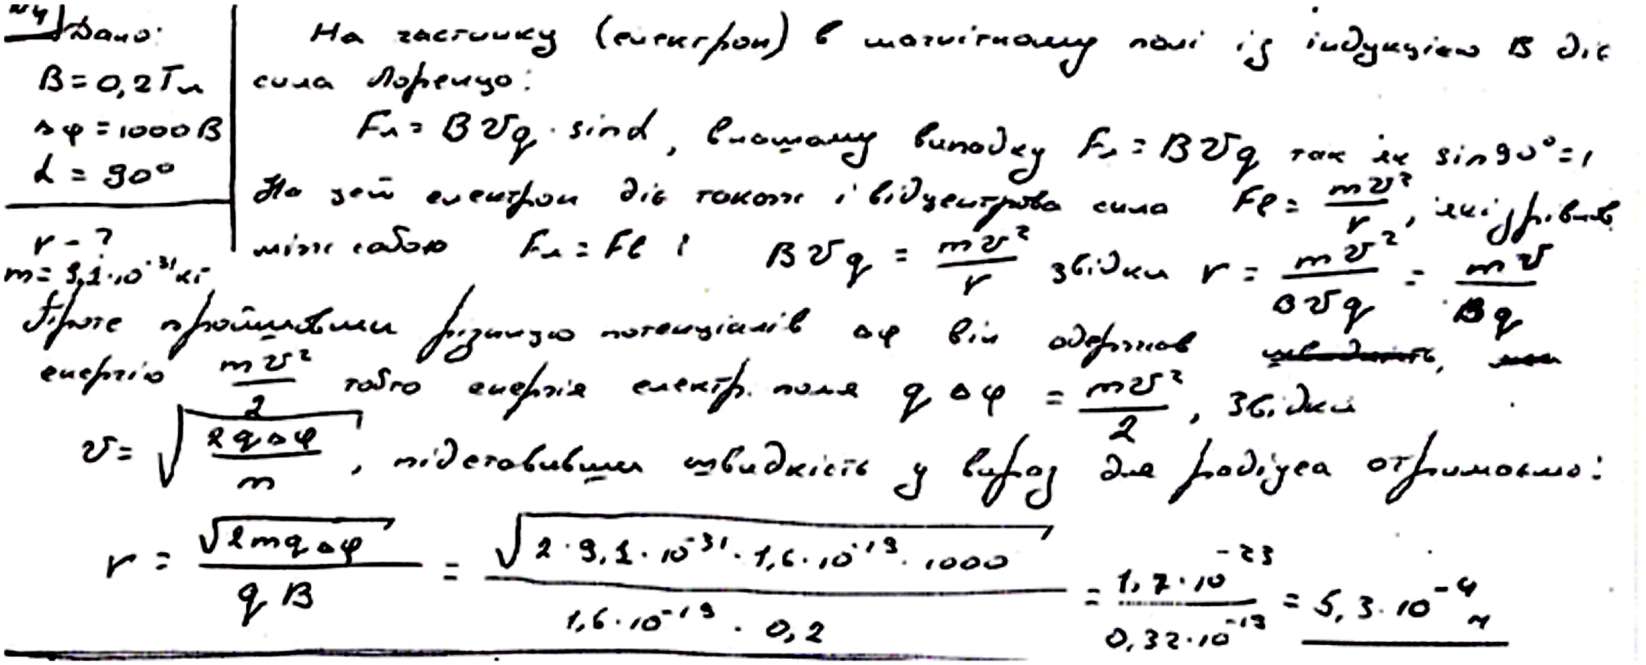 №4 Дано:
B = 0,2 Тл
Δφ = 1000 В
α = 90°
r - ?
m = 9,1·10⁻³¹ кг
На частинку (електрон) в магнітному полі із індукцією B діє
сила Лоренца:
Fл = Bυq · sinα, в нашому випадку Fл = Bυq так як sin90° = 1
На цей електрон діє також і відцентрова сила Fв = mυ²/r, які зрівнов
між собою Fл = Fв і Bυq = mυ²/r звідки r = mυ²/Bυq = mυ/Bq
Проте пройшовши різницю потенціалів Δφ він одержав
енергію mυ²/2 тобто енергія електр. поля qΔφ = mυ²/2, звідки
υ = √(2qΔφ/m), підставивши швидкість у вираз для радіуса отримаємо:
r = √(2mqΔφ)/qB = √(2·9,1·10⁻³¹·1,6·10⁻¹⁹·1000)/(1,6·10⁻¹⁹·0,2) = 1,7·10⁻²³/0,32·10⁻¹⁹ = 5,3·10⁻⁴ м